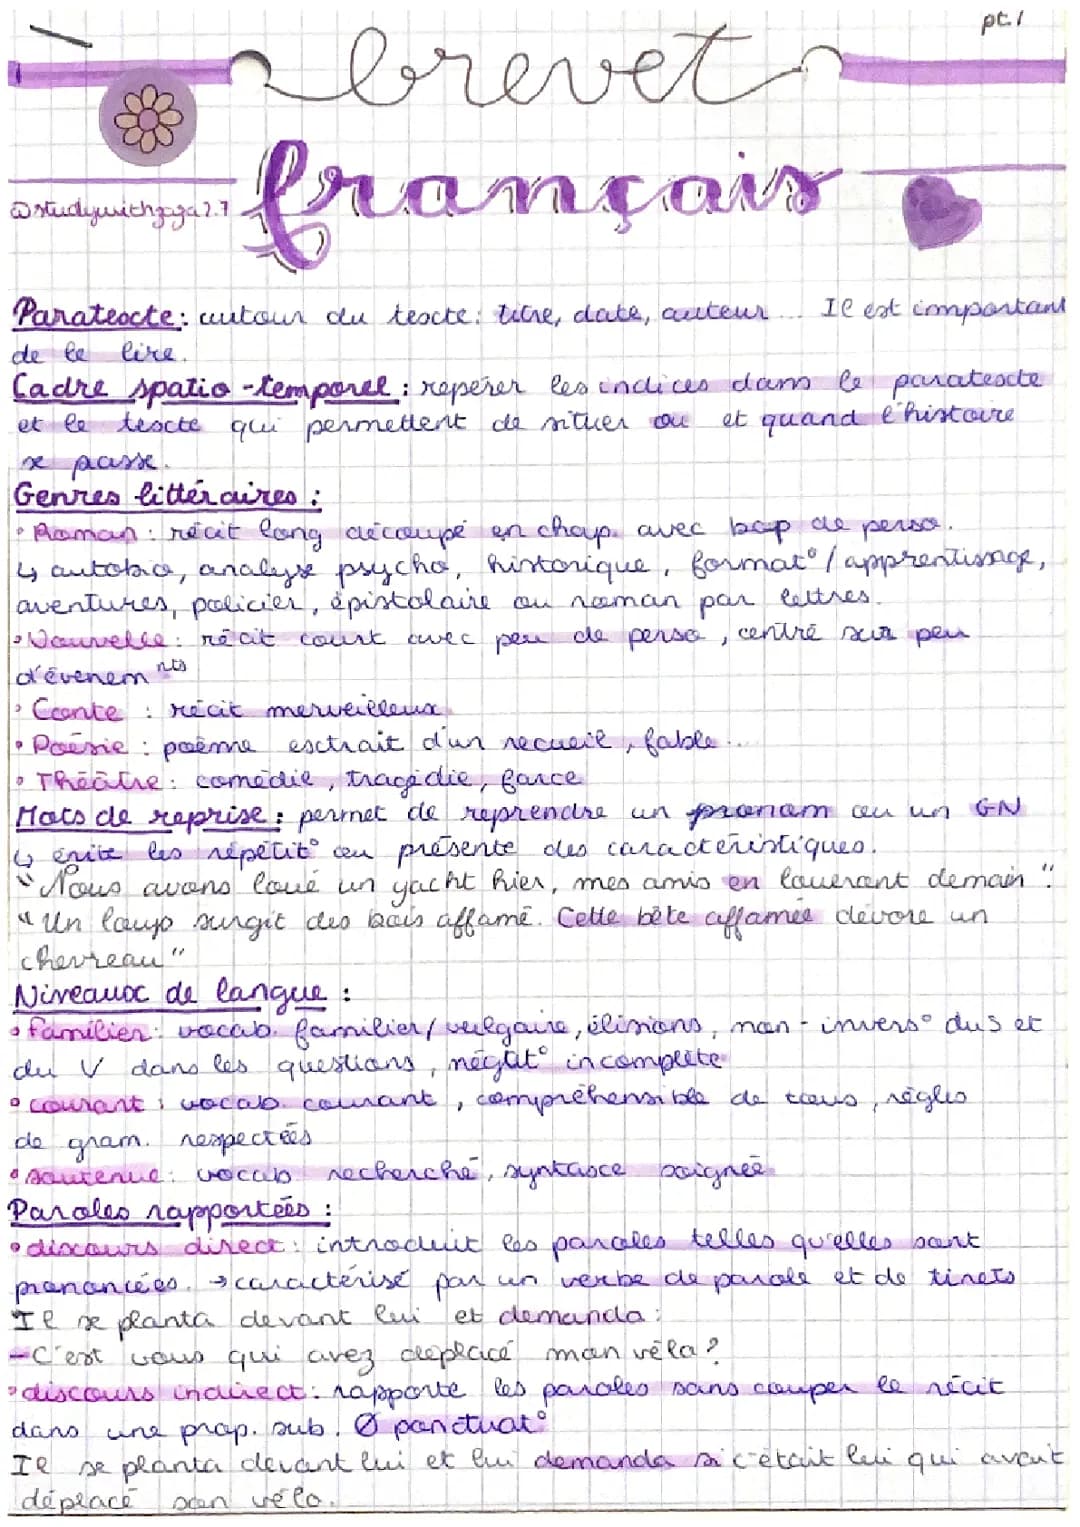 pt.1
brevet
français
@studywithgaga2.7
Paratexte : autour du texte : titre, date, auteur ... Il est important
de le lire.
Cadre spatio-temporel : repérer les indices dans le paratexte
et le texte qui permettent de situer ou et quand l'histoire
se passe.
Genres littéraires :
• Roman : récit long découpé en chap. avec bcp de perso.
↳ autobio, analyse psycho, historique, format° / apprentissage,
aventures, policier, épistolaire ou roman par lettres.
• Nouvelle : récit court avec peu de perso, centré sur peu
d'évenem nts
• Conte : récit merveilleux
• Poésie : poème extrait d'un recueil, fable...
• Théâtre : comédie, tragédie, farce
Mots de reprise : permet de reprendre un pronom ou un GN
↳ évite les répétit° ou présente des caractéristiques.
"Nous avons loué un yacht hier, mes amis en loueront demain".
"Un loup surgit des bois affamé. Cette bête affamée dévore un
chevreau"
Niveaux de langue :
• familier : vocab. familier/vulgaire, élisions, non-invers° du S et
du V dans les questions, négat° incomplète
• courant : vocab. courant, compréhensible de tous, règles
de gram. respectées
• soutenue : vocab recherché, syntaxe soignée
Paroles rapportées :
• discours direct : introduit les paroles telles qu'elles sont
prononcées. → caractérisé par un verbe de parole et de tirets
Il se planta devant lui et demanda :
-C'est vous qui avez déplacé mon vélo ?
• discours indirect : rapporte les paroles sans couper le récit
dans une prop. sub. Ø ponctuat°
Il se planta devant lui et lui demanda si c'était lui qui avait
déplacé son vélo.